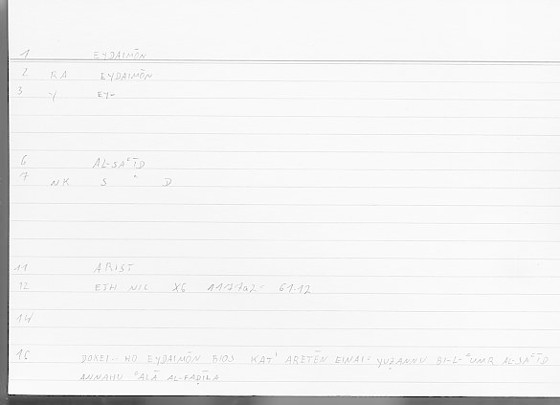 1 EYDAIMŌN
2 RA EYDAIMŌN
3 Y EY-
6 AL-SAʿĪD
7 NK S ʿ D
11 ARIST
12 ETH NIC X6 61.12
14
16 DOKEI.. HO EYDAIMŌN BIOS KAT' ARETĒN EINAI = YUẒANNU BI-L-ʿUMR AL-SAʿĪD
ANNAHU ʿALĀ AL-FAḌĪLA